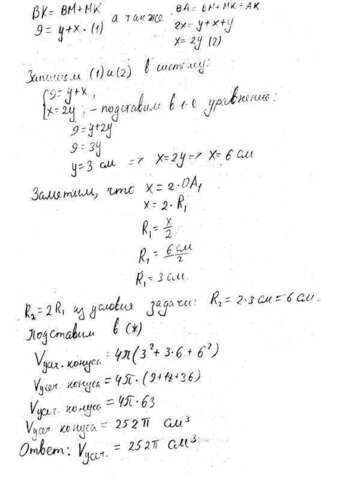 BK = BM+MK
9 = y+x · (1)
а также
BA = BM+MK=AK
2x = y+x+y
x = 2y (2)
Запишем (1) и (2) в систему:
{9 = y+x,
{x = 2y; - подставим в 1-е уравнение:
9 = y+2y
9 = 3y
y = 3 см => x = 2y => x = 6 см
Заметим, что x = 2·OA₁
x = 2·R₁
R₁ = x/2
R₁ = 6 см/2
R₁ = 3 см.
R₂ = 2R₁ из условия задачи: R₂ = 2·3 см = 6 см.
Подставим в (*)
Vусеч. конуса = 4π(3²+3·6+6²)
Vусеч. конуса = 4π·(9+18+36)
Vусеч. конуса = 4π·63
Vусеч конуса = 252π см³
Ответ: Vусеч. = 252π см³